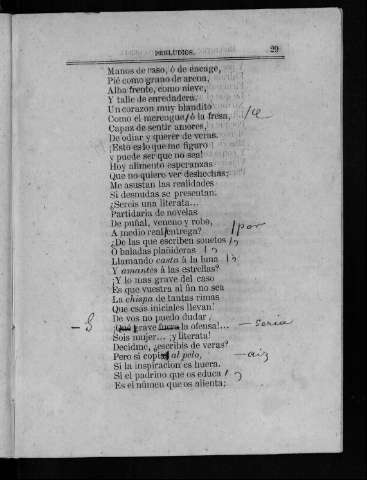 PRELUDIOS. 29
Manos de raso, ó de encage,
Pié como grano de arena,
Alba frente, como nieve,
Y talle de enredadera.
Un corazon muy blandito
Como el merengue, ó la fresa, /le
Capaz de sentir amores,
De odiar y querer de veras.
¡Esto es lo que me figuro
y puede ser que no sea!
Hoy alimento esperanzas
Que no quiero ver deshechas;
Me asustan las realidades
Si desnudas se presentan.
¿Sereis una literata...
Partidaria de novelas
De puñal, veneno y robo,
A medio real entrega? /por
¿De las que escriben sonetos
O baladas plañideras
Llamando casta á la luna
Y amantes á las estrellas?
¡Y lo mas grave del caso
Es que vuestra al fin no sea
La chispa de tantas rimas
Que esas iniciales llevan!
De vos no puedo dudar
¡Qué grave fuera la ofensa!... —seria
Sois mujer... ¡y literata!
Decidme, ¿escribis de veras?
Pero si copiais al pelo, —aiz
Si la inspiracion es huera.
Si el padrino que os educa
Es el númen que os alienta;